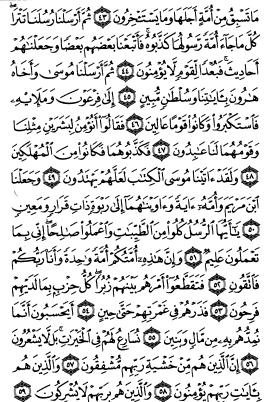 مَا تَسْبِقُ مِنْ أُمَّةٍ أَجَلَهَا وَمَا يَسْتَـْٔخِرُونَ ٤٣ ثُمَّ أَرْسَلْنَا رُسُلَنَا تَتْرَا
كُلَّ مَا جَآءَ أُمَّةً رَّسُولُهَا كَذَّبُوهُ فَأَتْبَعْنَا بَعْضَهُم بَعْضًا وَجَعَلْنَٰهُمْ
أَحَادِيثَ فَبُعْدًا لِّقَوْمٍ لَّا يُؤْمِنُونَ ٤٤ ثُمَّ أَرْسَلْنَا مُوسَىٰ وَأَخَاهُ
هَٰرُونَ بِـَٔايَٰتِنَا وَسُلْطَٰنٍ مُّبِينٍ ٤٥ إِلَىٰ فِرْعَوْنَ وَمَلَإِي۟هِ
فَٱسْتَكْبَرُوا۟ وَكَانُوا۟ قَوْمًا عَالِينَ ٤٦ فَقَالُوٓا۟ أَنُؤْمِنُ لِبَشَرَيْنِ مِثْلِنَا
وَقَوْمُهُمَا لَنَا عَٰبِدُونَ ٤٧ فَكَذَّبُوهُمَا فَكَانُوا۟ مِنَ ٱلْمُهْلَكِينَ
٤٨ وَلَقَدْ ءَاتَيْنَا مُوسَى ٱلْكِتَٰبَ لَعَلَّهُمْ يَهْتَدُونَ ٤٩ وَجَعَلْنَا
ٱبْنَ مَرْيَمَ وَأُمَّهُۥٓ ءَايَةً وَءَاوَيْنَٰهُمَآ إِلَىٰ رَبْوَةٍ ذَاتِ قَرَارٍ وَمَعِينٍ
٥٠ يَٰٓأَيُّهَا ٱلرُّسُلُ كُلُوا۟ مِنَ ٱلطَّيِّبَٰتِ وَٱعْمَلُوا۟ صَٰلِحًا إِنِّى بِمَا
تَعْمَلُونَ عَلِيمٌ ٥١ وَإِنَّ هَٰذِهِۦٓ أُمَّتُكُمْ أُمَّةً وَٰحِدَةً وَأَنَا۠ رَبُّكُمْ
فَٱتَّقُونِ ٥٢ فَتَقَطَّعُوٓا۟ أَمْرَهُم بَيْنَهُمْ زُبُرًا كُلُّ حِزْبٍۭ بِمَا لَدَيْهِمْ
فَرِحُونَ ٥٣ فَذَرْهُمْ فِى غَمْرَتِهِمْ حَتَّىٰ حِينٍ ٥٤ أَيَحْسَبُونَ أَنَّمَا
نُمِدُّهُم بِهِۦ مِن مَّالٍ وَبَنِينَ ٥٥ نُسَارِعُ لَهُمْ فِى ٱلْخَيْرَٰتِ بَل لَّا يَشْعُرُونَ
٥٦ إِنَّ ٱلَّذِينَ هُم مِّنْ خَشْيَةِ رَبِّهِم مُّشْفِقُونَ ٥٧ وَٱلَّذِينَ هُم
بِـَٔايَٰتِ رَبِّهِمْ يُؤْمِنُونَ ٥٨ وَٱلَّذِينَ هُم بِرَبِّهِمْ لَا يُشْرِكُونَ ٥٩